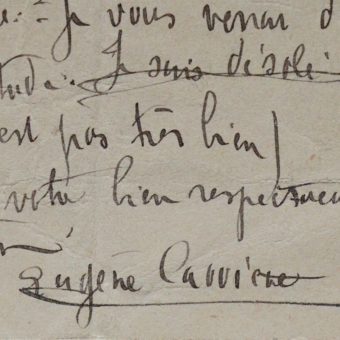 Je vous verrai d
tude. Je suis désolé
est pas très bien)
votre bien respectueu
Eugène Carrière